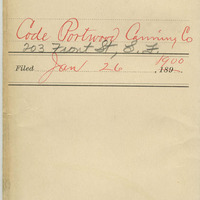 Code Portwood Canning Co
203 Front St, S. F.
1900
Filed Jan 26 189